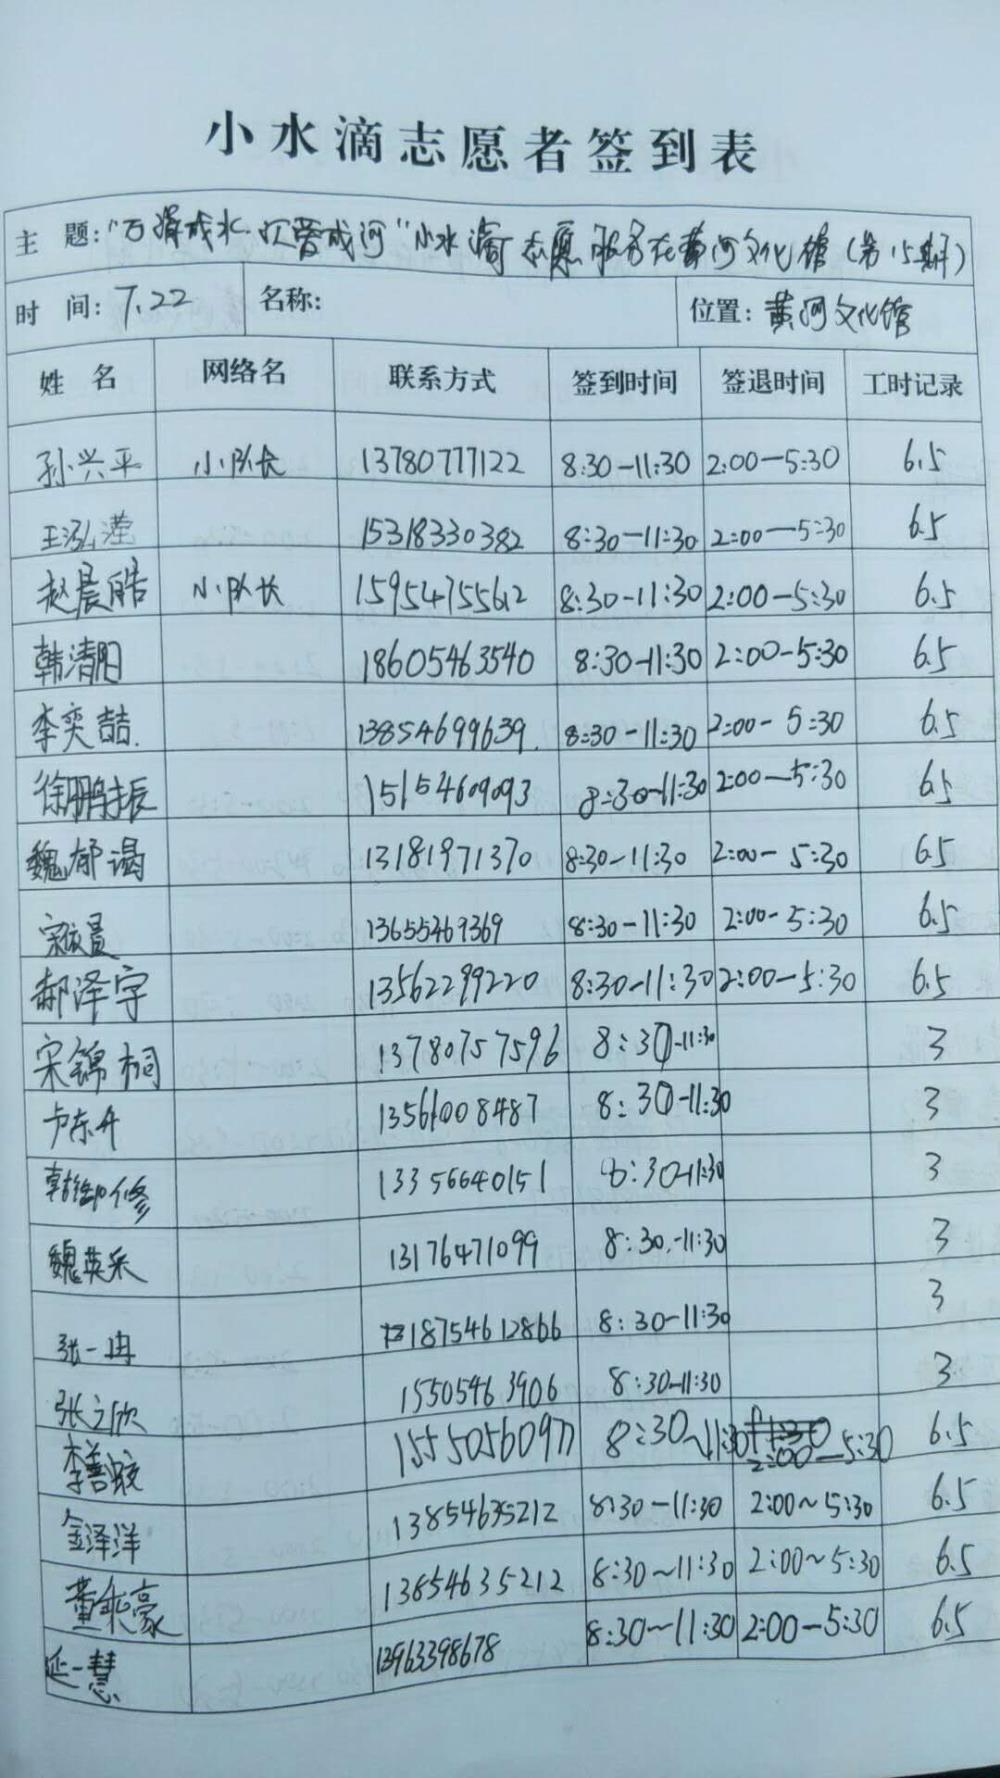 小水滴志愿者签到表
主 题: "百滴成水.沉聚成河"小水滴志愿服务在黄河文化馆(第15期)
时 间: 7.22 名称: 位置: 黄河文化馆
姓 名 网络名 联系方式 签到时间 签退时间 工时记录
孙兴平 小队长 13780777122 8:30-11:30 2:00-5:30 6.5
王泓滢 15318330382 8:30-11:30 2:00-5:30 6.5
赵晨皓 小队长 15954755612 8:30-11:30 2:00-5:30 6.5
韩清阳 18605463540 8:30-11:30 2:00-5:30 6.5
李奕喆. 13854699639. 8:30-11:30 2:00-5:30 6.5
徐鹏振 15154609093 8:30-11:30 2:00-5:30 6.5
魏郁谒 13181971370 8:30-11:30 2:00-5:30 6.5
宋 13655469369 8:30-11:30 2:00-5:30 6.5
郝泽宇 13562299220 8:30-11:30 2:00-5:30 6.5
宋锦桐 13780757596 8:30-11:30 3
卢东升 13561008487 8:30-11:30 3
韩御修 13356640151 8:30-11:30 3
魏英采 13176471099 8:30-11:30 3
张一冉 18754612866 8:30-11:30 3
张立欣 15505463906 8:30-11:30 3
李善 8:30~11:30 2:00-5:30 6.5
金泽洋 13854635212 8:30-11:30 2:00~5:30 6.5
董秉豪 13854635212 8:30~11:30 2:00~5:30 6.5
延一慧 13963398678 8:30~11:30 2:00-5:30 6.5